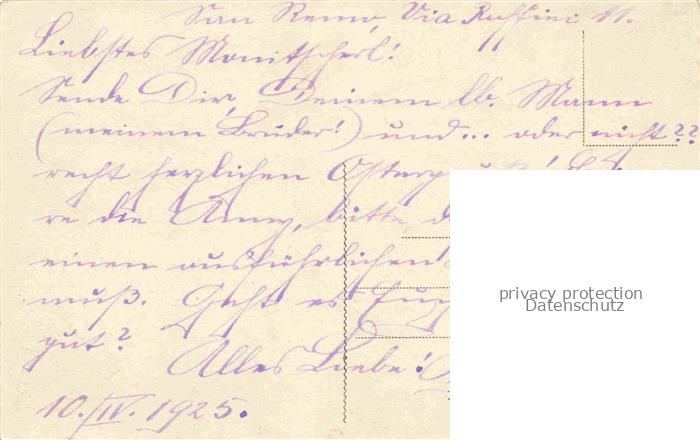 San Remo, Via Ruffini 11.
Liebstes Monitscherl!
Sende Dir, Deinem lb. Mann
(meinem Bruder!) und... oder nicht??
recht herzlichen
re die Anny, bitte,
einen ausführlichen
muß. Geht es
gut?
Alles Liebe!
10./IV. 1925.
privacy protection
Datenschutz